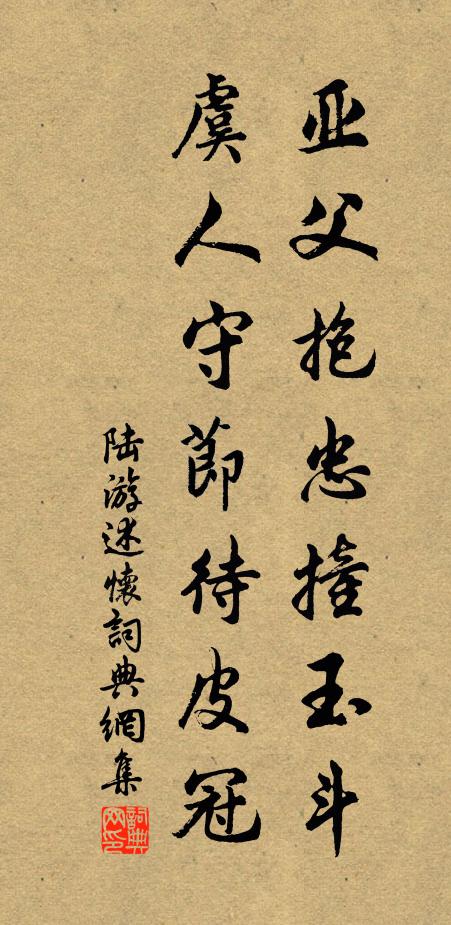 亚父抱忠撞玉斗
虞人守節待皮冠
陆游述懷詞典網集
詞典网印